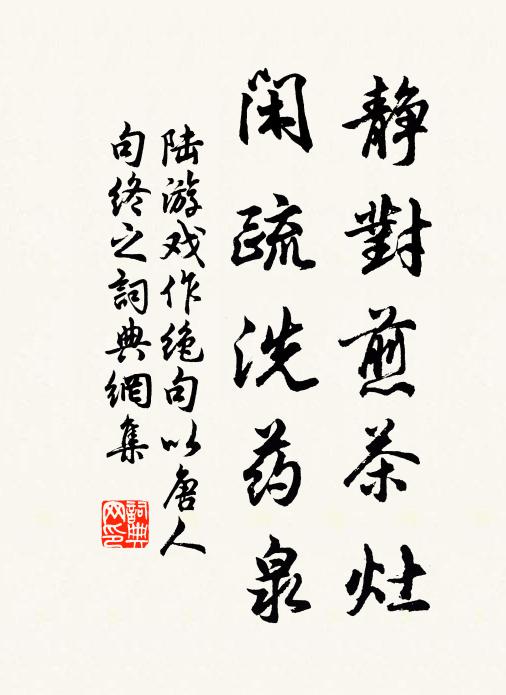 静對煎茶灶
闲疏洗药泉
陆游戏作绝句以唐人
句终之詞典網集
詞典
网印